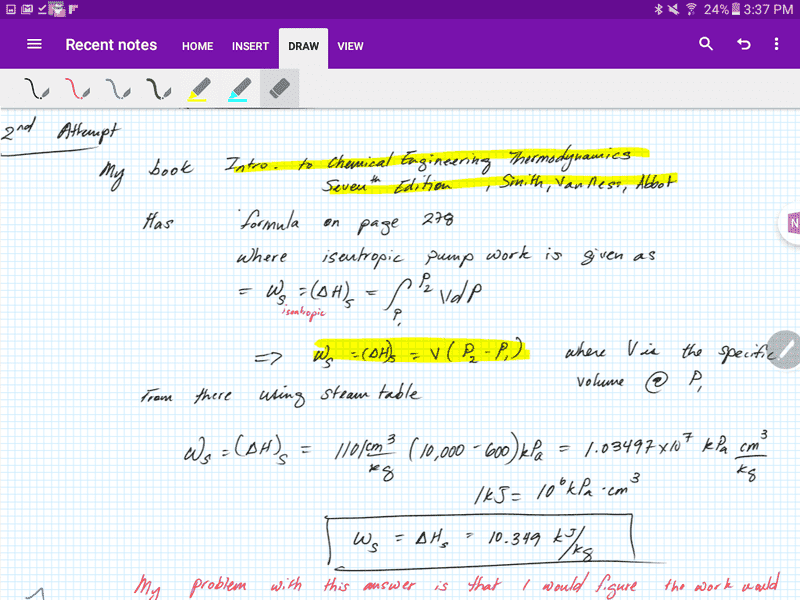 24% 3:37 PM
Recent notes HOME INSERT DRAW VIEW
2nd Attempt
My book Intro. to Chemical Engineering Thermodynamics
Seventh Edition, Smith, Van Ness, Abbot
Has formula on page 278
where isentropic pump work is given as
= Ws = (ΔH)s = ∫P1^P2 VdP
isentropic
=> Ws = (ΔH)s = V(P2 - P1) where V is the specific
volume @ P1
From there using steam table
Ws = (ΔH)s = 1101 cm³/kg (10,000 - 600) kPa = 1.03497 x 10⁷ kPa cm³/kg
1kJ = 10⁶ kPa · cm³
Ws = ΔHs = 10.349 kJ/kg
My problem with this answer is that I would figure the work would